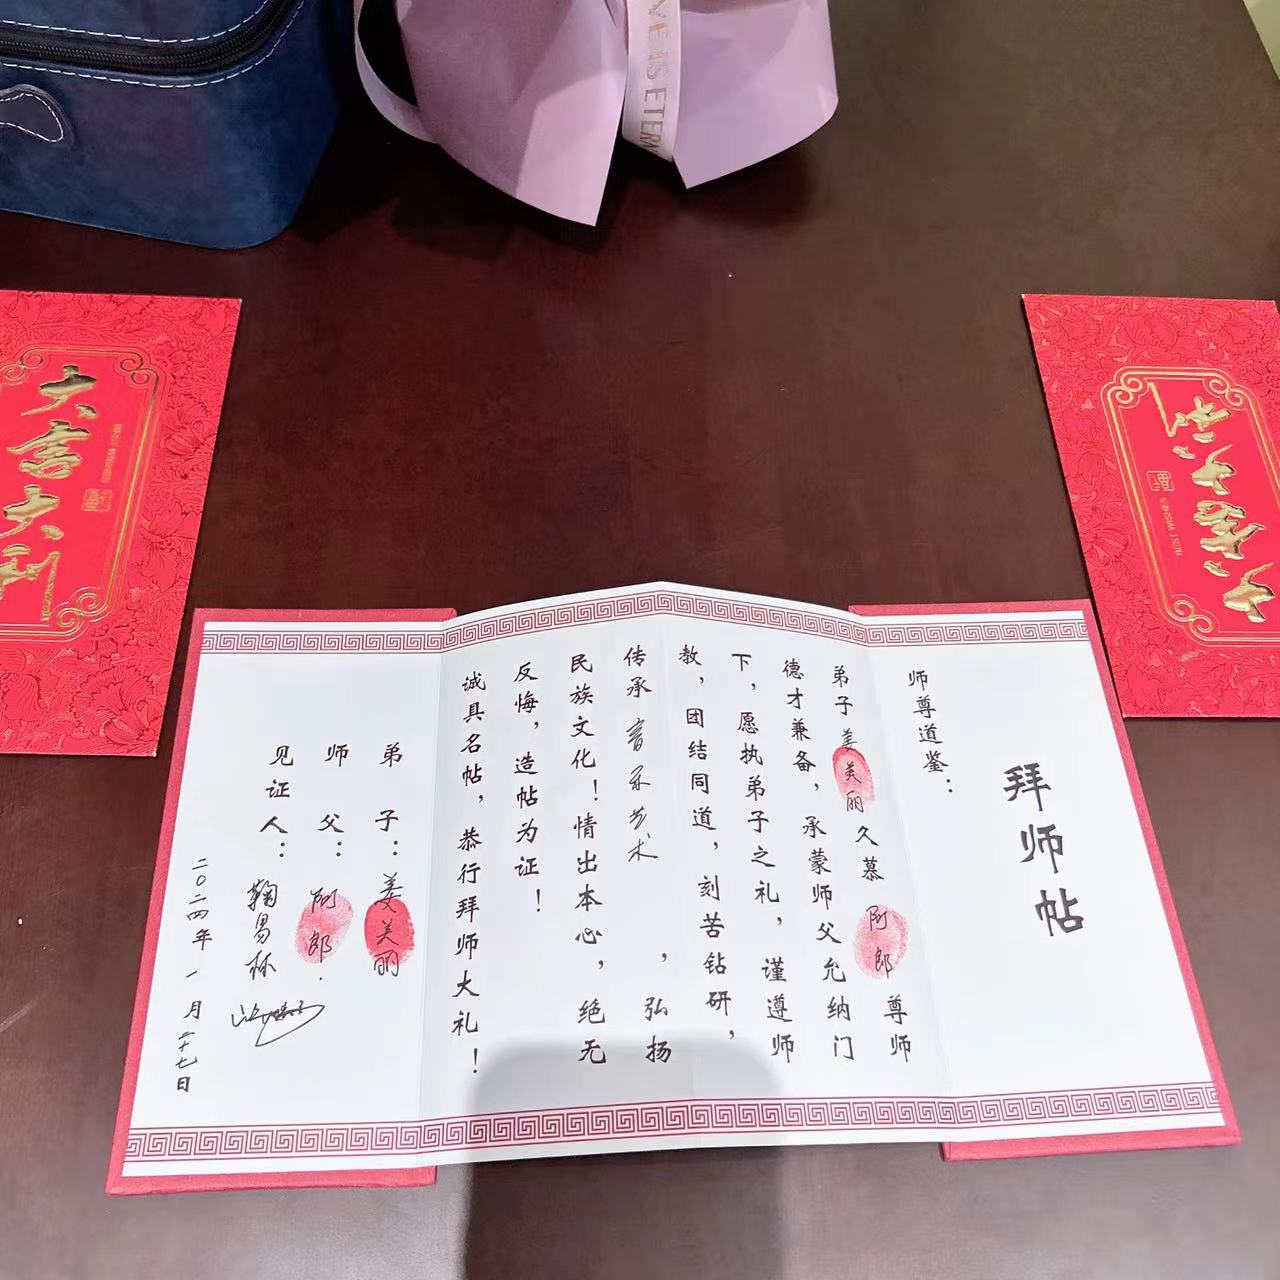 VE IS ETERN
大吉大利
BEST WISHES
大吉大利
BEST WISHES
拜师帖
师尊道鉴：
弟子姜美丽久慕阿郎尊师
德才兼备，承蒙师父允纳门
下，愿执弟子之礼，谨遵师
教，团结同道，刻苦钻研，
传承音乐艺术，弘扬
民族文化！情出本心，绝无
反悔，造帖为证！
诚具名帖，恭行拜师大礼！
弟子：姜美丽
师父：阿郎.
见证人：鞠易林
二〇二四年一月二十七日